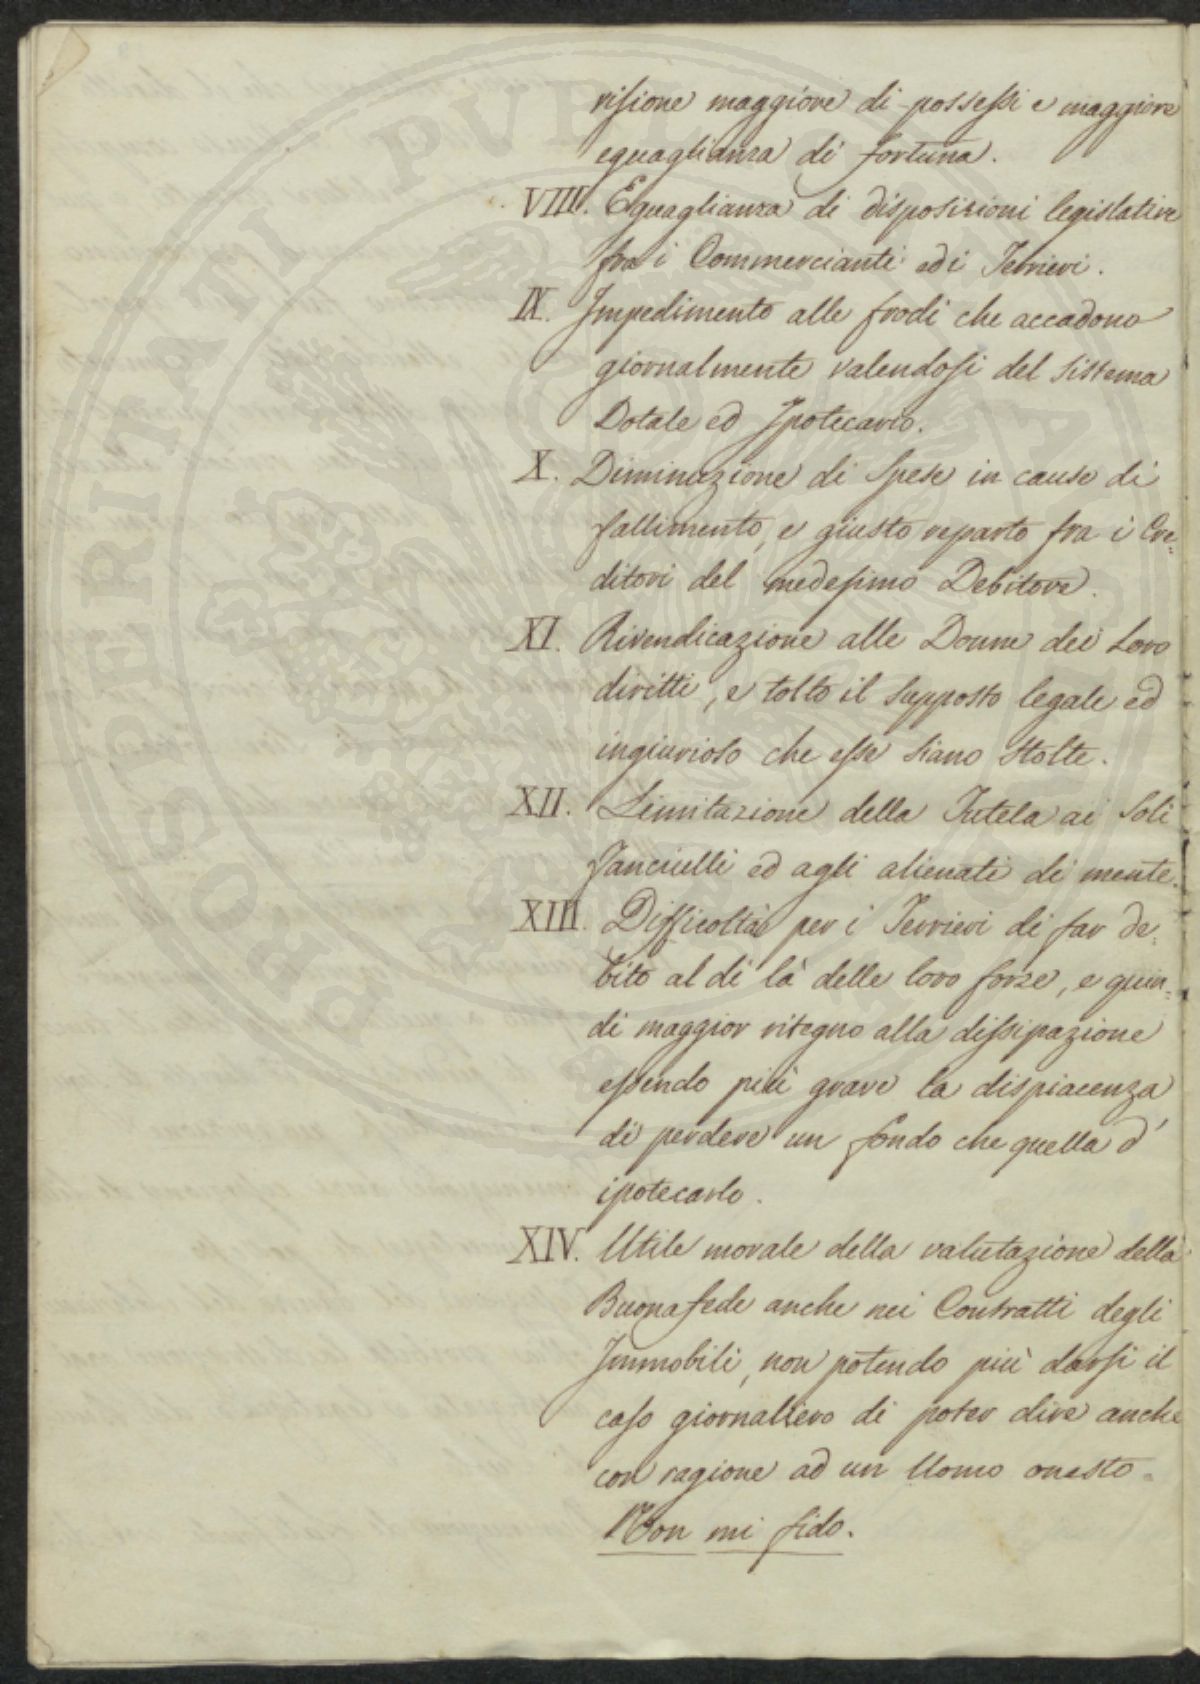 visione maggiore di possessi e maggiore
eguaglianza di fortuna.
VIII. Eguaglianza di disposizioni legislative
fra i Commercianti ed i Terrieri.
IX. Impedimento alle frodi che accadono
giornalmente valendosi del sistema
Dotale ed Ipotecario.
X. Diminuzione di Spese in cause di
fallimento, e giusto reparto fra i Cre=
ditori del medesimo Debitore.
XI. Rivendicazione alle Donne dei Loro
diritti, e tolto il supposto legale ed
ingiurioso che esse siano stolte.
XII. Limitazione della Tutela ai Soli
fanciulli ed agli alienati di mente.
XIII. Difficoltà per i Terrieri di far de=
bito al di là delle loro forze, e quin=
di maggior ritegno alla dissipazione
essendo più grave la dispiacenza
di perdere un fondo che quella d'
ipotecarlo.
XIV. Utile morale della valutazione della
Buonafede anche nei Contratti degli
Immobili, non potendo più darsi il
caso giornaliero di poter dire anche
con ragione ad un Uomo onesto =
Non mi fido.
PROSPERITATI PVBLICAE